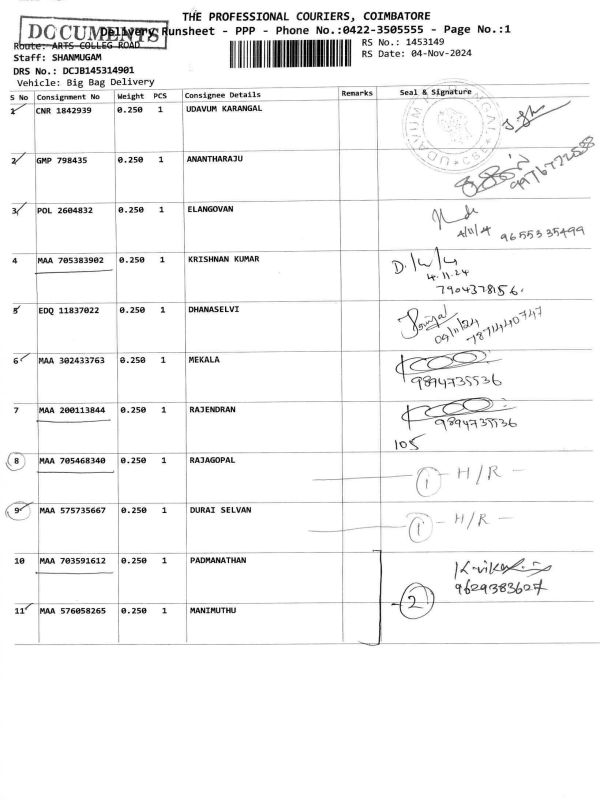 THE PROFESSIONAL COURIERS, COIMBATORE
DOCUMENTS
Delivery Runsheet - PPP - Phone No.:0422-3505555 - Page No.:1
Route: ARTS COLLEG ROAD
RS No.: 1453149
Staff: SHANMUGAM
RS Date: 04-Nov-2024
DRS No.: DCJB145314901
Vehicle: Big Bag Delivery
S No Consignment No Weight PCS Consignee Details Remarks Seal & Signature
1 CNR 1842939 0.250 1 UDAVUM KARANGAL
UDAVUM KARANGAL CBE
2 GMP 798435 0.250 1 ANANTHARAJU
3 POL 2604832 0.250 1 ELANGOVAN
4/11/24 9655335499
4 MAA 705383902 0.250 1 KRISHNAN KUMAR
4.11.24
7904378156.
5 EDQ 11837022 0.250 1 DHANASELVI
04/11/24 7871440747
6 MAA 302433763 0.250 1 MEKALA
9894735536
7 MAA 200113844 0.250 1 RAJENDRAN
9894735536
105
8 MAA 705468340 0.250 1 RAJAGOPAL
1 - H/R -
9 MAA 575735667 0.250 1 DURAI SELVAN
1 - H/R -
10 MAA 703591612 0.250 1 PADMANATHAN
9629383627
2
11 MAA 576058265 0.250 1 MANIMUTHU